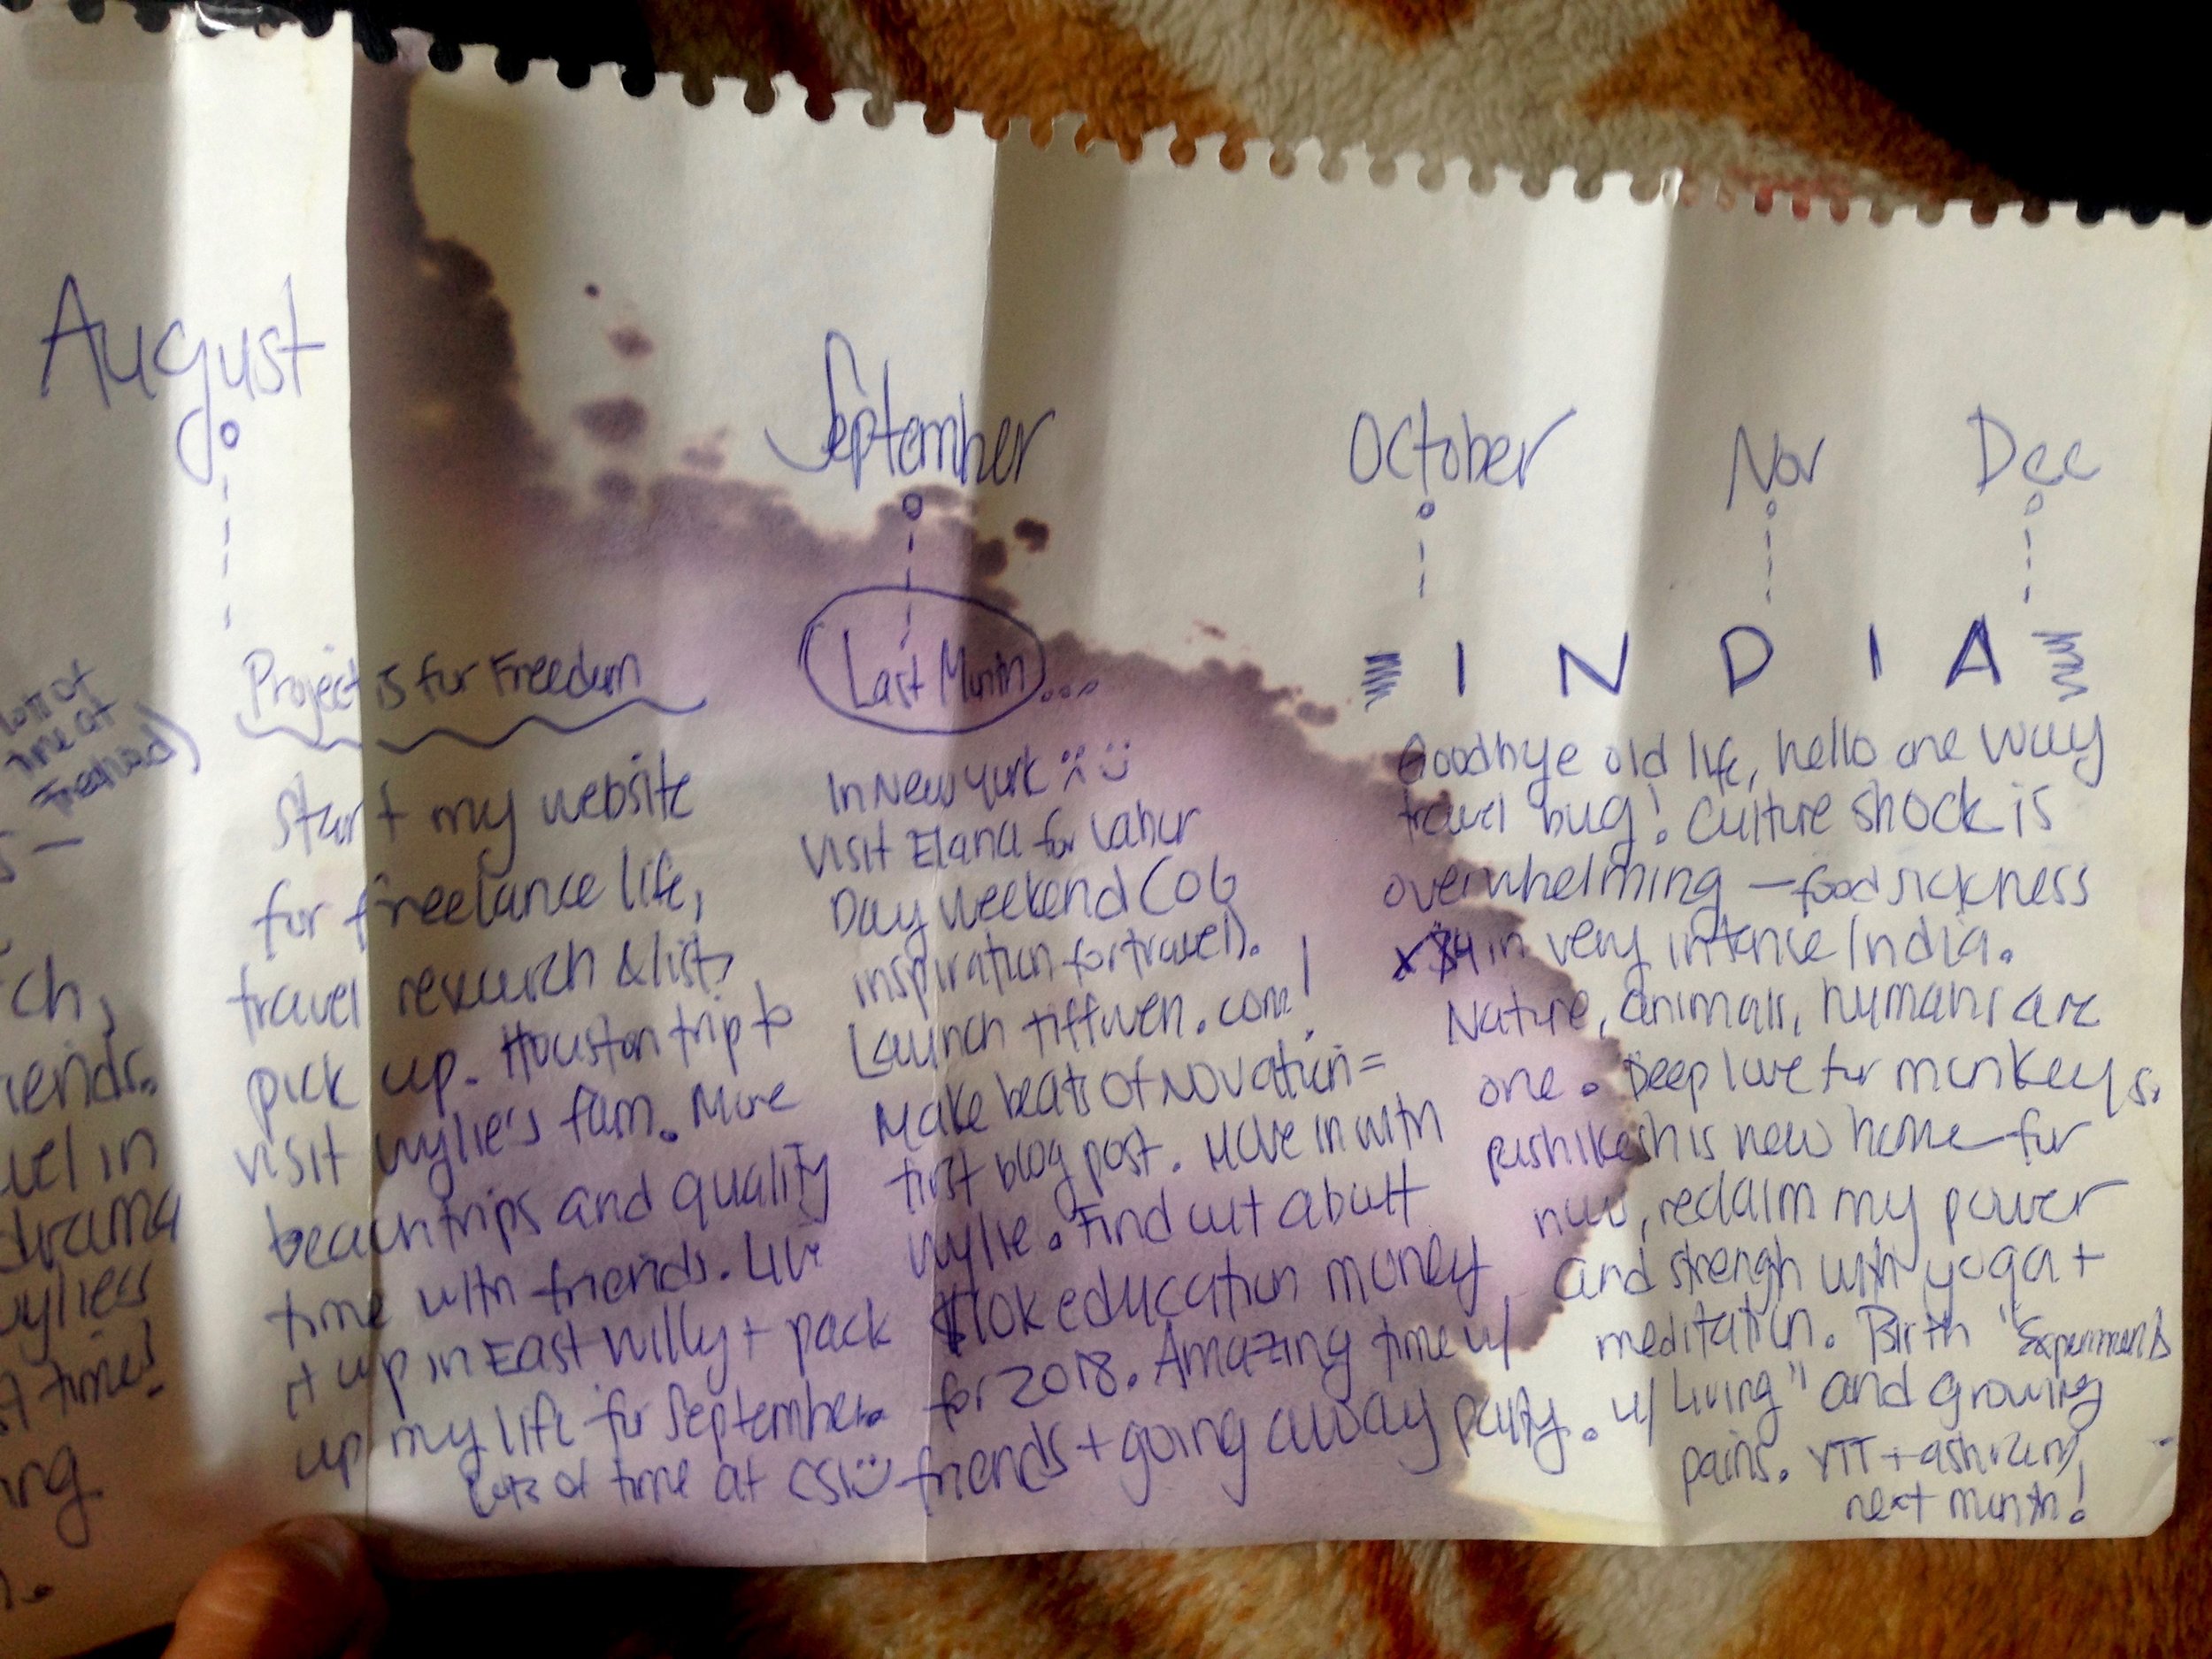 August
September
October
Nov
Dec
lots of
time at
ch,
iends.
vel in
drama
wylies
time!
ng
Project is for Freedom
Start my website
for freelance life,
travel research & lists
pick up. Houston trip to
visit Wylie's fam. More
beach trips and quality
time with friends. Live
it up in East Willy + pack
up my life for September.
Lots of time at CSW
Last Month...
In New York
Visit Elana for Labor
Day Weekend (OG
inspiration for travel).
Launch tiffwen.com!
Make beats of Novation =
first blog post. Move in with
Wylie. Find out about
$10K education money
for 2018. Amazing time w/
friends + going away party.
INDIA
Goodbye old life, hello one way
travel bug! Culture shock is
overwhelming - food sickness
x 4 in very intense India.
Nature, animals, humans are
one. Deep love for monkeys.
Rishikesh is new home for
now, reclaim my power
and strengh with yoga +
meditation. Birth "Experiments
w/ Living" and growing
pains. YTT + ashram
next month!